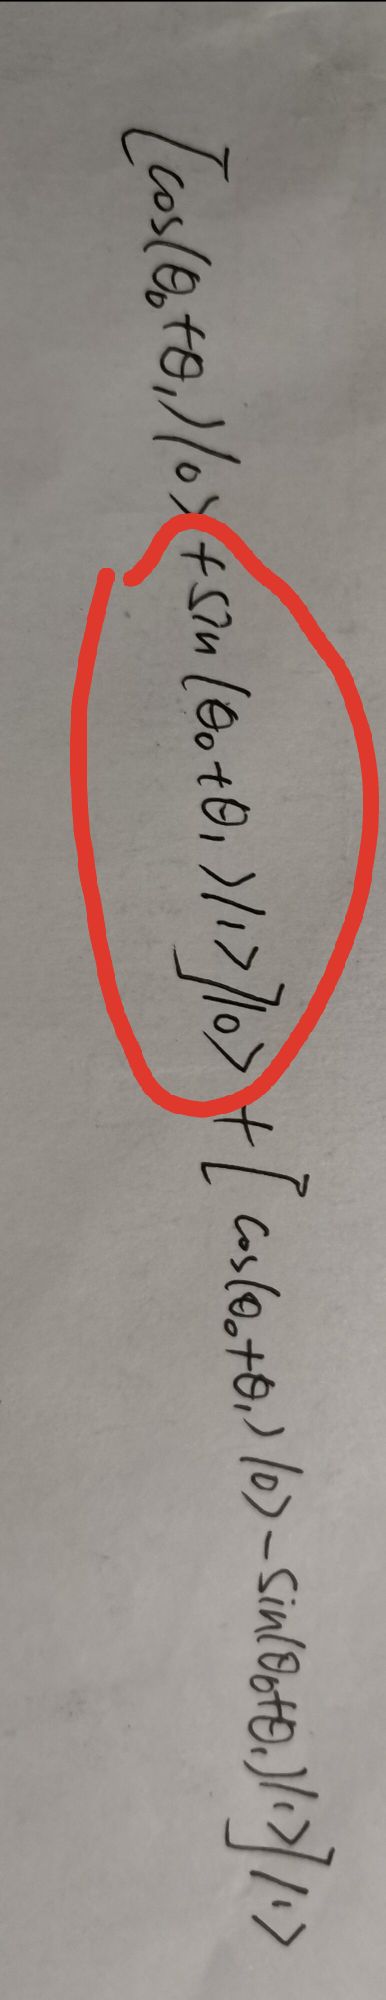 [cos(θ₀+θ₁)|0>+sin(θ₀+θ₁)|1>]|0>+[cos(θ₀+θ₁)|0>-sin(θ₀+θ₁)|1>]|1>